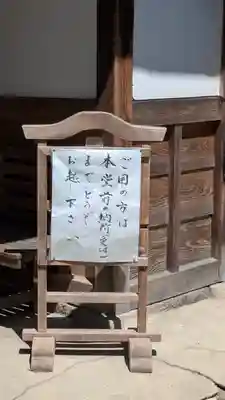 ご用の方は
本堂前の納所
までどうぞ
お越下さい